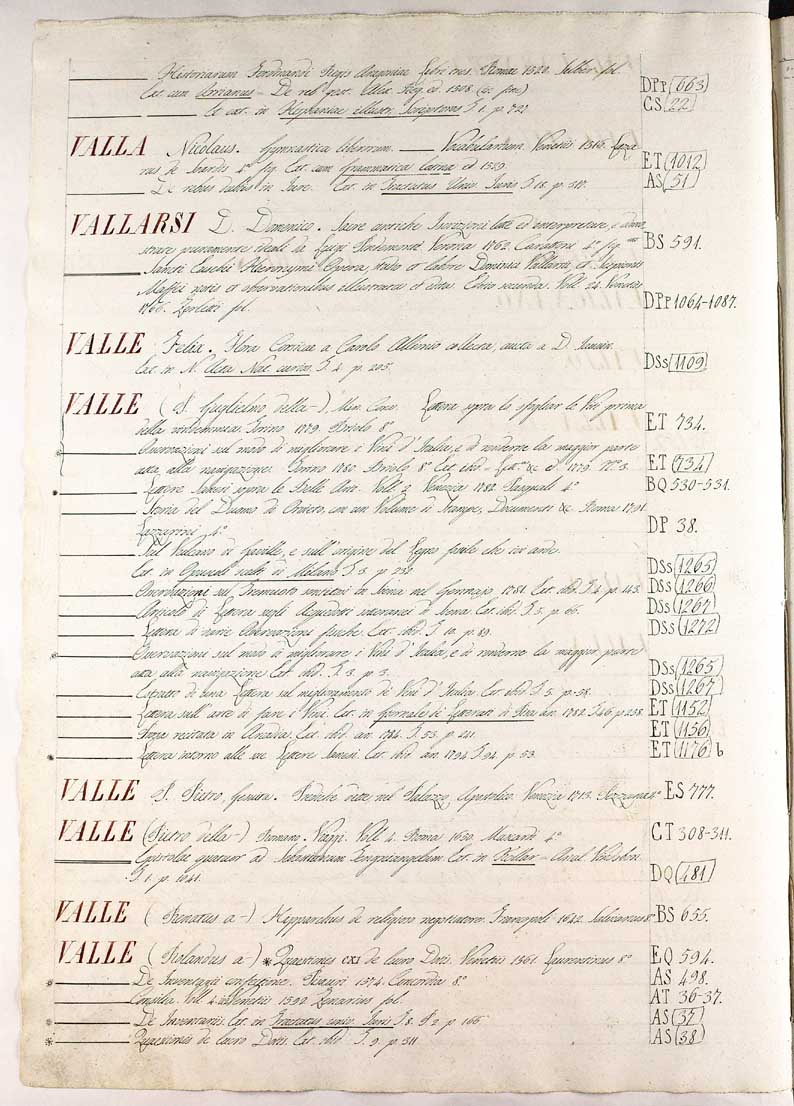 Historiarum Ferdinandi Regis Aragoniae Libri tres. Romae 1520. Silber fol.
Est cum De reb. gest. Alex. Mag. ed. 1508. DPp (663)
Et est in Hispaniae illustr. Scriptores T. 1. p. 727 CS (22)
VALLA Nicolaus. Gymnastica literarum. — Vocabularium. Venetiis 1516.
rus de Soardis 4º fig. Est cum Grammatica latina ed 1529. ET (1012)
De rebus dubiis in Jure. Est. in Tractatus Univ. Juris T. 18. p. 310. AS (51)
VALLARSI D. Domenico. Sacre antiche Iscrizioni late ed interpretate, e
strate puramente ideali da Pietro Verona 1762. Carattoni 4º fig. BS 591.
Sancti Eusebii Hieronymi Opera, studio et labore Dominici Vallarsii et Scipionis
Maffei notis et observationibus illustrata et edita. Editio secunda. Voll. 24. Venetiis
1766. Zerletti fol. DPp 1064-1087.
VALLE Felix. Flora Corsicae a Carolo Allionio collecta, aucta a D. Jaussin.
Est. in N. Acta Nat. curios. T. 4. p. 205. DSs (1109)
VALLE (P. Guglielmo della-) Min. Conv. Lettera sopra lo sfogliar le Viti prima
della vendemmia. Torino 1779. Briolo 8º ET 734.
* Osservazioni sul modo di migliorare i Vini d'Italia, e di renderne la maggior parte
atta alla navigazione. Torino 1780 Briolo 8º Est. ibid. - Lett.ª &c. ed. 1779. Nº 3. ET (734)
* Lettere Sanesi sopra le Belle Arti. Voll. 2. Venezia 1782. Pasquali 4º BQ 530-531.
Storia del Duomo di Orvieto, con un Volume di Stampe, Documenti &c. Roma 1791.
Lazzarini 4º DP 38.
Sul Vulcano di Gaville, e sull'origine del Legno fossile che ivi arde.
Est. in Opuscoli scelti di Milano T. 3. p. 232. DSs (1265)
Osservazioni sul Tremuoto sentitosi in Siena nel Gennajo 1781. Est. ibid. T. 4. p. 143. DSs (1266)
Articolo di Lettera sugli Acquedotti sotterranei di Siena. Est. ibid. T. 5. p. 66. DSs (1267)
Lettera di varie Osservazioni fisiche. Est. ibid. T. 10. p. 89. DSs (1272)
* Osservazioni sul modo di migliorare i Vini d'Italia, e di renderne la maggior parte
atta alla navigazione Est. ibid. T. 3. p. 3. DSs (1265)
Estratto di una Lettera sul miglioramento de' Vini d'Italia. Est. ibid. T. 5. p. 58. DSs (1267)
Lettera sull'arte di fare i Vini. Est. in Giornale di Letterati di Pisa an. 1782. T. 46. p. 238. ET (1152)
Prosa recitata in Arcadia. Est. ibid. an. 1784. T. 53. p. 241. ET (1156)
* Lettera intorno alle sue Lettere Sanesi. Est. ibid. an. 1794 T. 94. p. 53. ET (1176) b
VALLE P. Pietro, Gesuita. Prediche dette nel Palazzo Apostolico. Venezia 1713. 4º ES 777.
VALLE (Pietro della-) Romano. Viaggi. Voll. 4. Roma 1650. Mascardi 4º CT 308-311.
Epistolae quatuor ad Sebastianum Tengnagelium. Est. in Kollar - Anal. Vindobon.
T. 1. p. 1041. DQ (481)
VALLE (Renatus a-) Hipparchus de religioso negotiatore. Francopoli 1642. 8º BS 655.
VALLE (Rolandus a-) * Quaestiones CXI de lucro Dotis. Venetiis 1561. Laurentinus 8º EQ 594.
* De Inventarii confectione. Pisauri 1574. Concordia 8º AS 498.
Consilia. Voll. 4. Venetiis 1592. Zenarius fol. AT 36-37.
* De Inventariis. Est. in Tractatus univ. Juris T. 8. P. 2. p. 166. AS (37)
* Quaestiones de lucro Dotis. Est. ibid. T. 9. p. 311. AS (38)